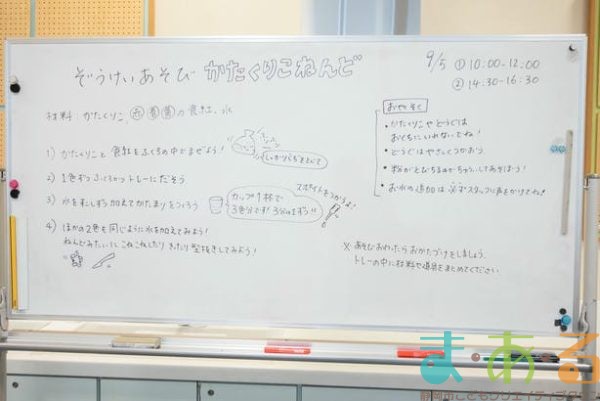 ぞうけいあそび かたくりこねんど
9/5 ① 10:00-12:00
② 14:30-16:30
材料 かたくりこ 赤 青 黄の食紅、水
1) かたくりこと食紅をふくろの中でまぜよう!
しっかりくちをとじて
2) 1色ずつ ふくろからトレーにだそう
3) 水を少しずつ加えてかたまりをつくろう
カップ1杯で
3色分です! 3分のまずつ!!
スポイトをつかうよ!
4) ほかの2色も同じように水を加えてみよう!
ねんどみたいに こねこねしたり きったり 型抜きしてみよう!
おやくそく
・かたくりこやどうぐは
おくちにいれないでね!
・どうぐはやさしくつかおう
・粉がとびちるのにちゅういしてあそぼう!
・お水の追加は必ずスタッフに声をかけてね!
※ あそびおわったらおかたづけをしましょう。
トレーの中に材料や道具をまとめてください
ま・あ・る